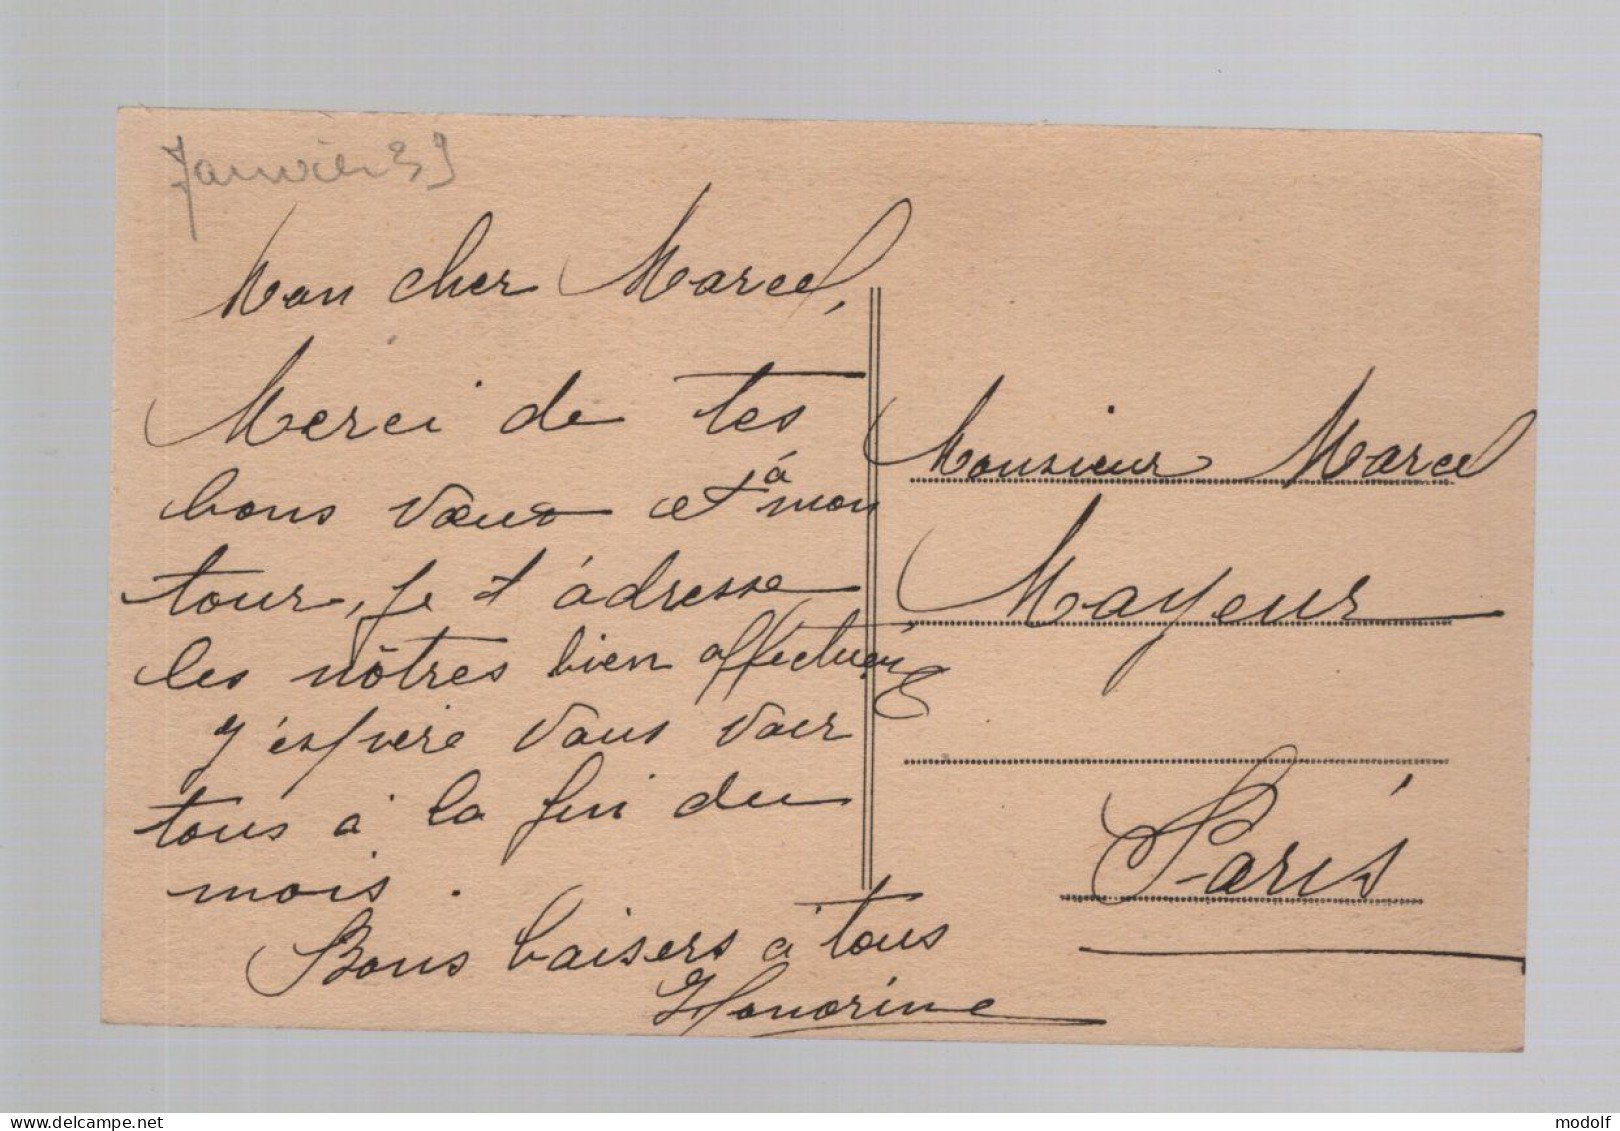 Janvier 39
Mon cher Marcel,
Merci de tes
bons vœux et à mon
tour, je t'adresse
les nôtres bien affectueux
J'espère vous voir
tous à la fin du
mois.
Bons baisers à tous
Honorine
Monsieur Marcel
Mayeur
Paris
delcampe.net
modolf